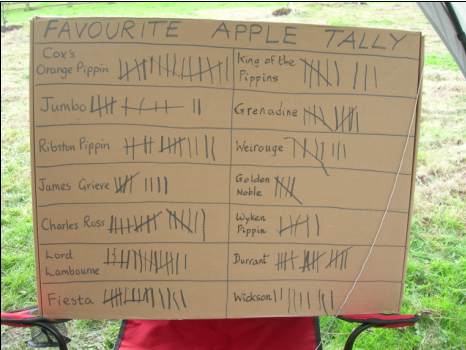 FAVOURITE APPLE TALLY
Cox's
Orange Pippin
King of the
Pippins
Jumbo
Grenadine
Ribston Pippin
Weirouge
James Grieve
Golden
Noble
Charles Ross
Wyken
Pippin
Lord
Lambourne
Durrant
Fiesta
Wickson